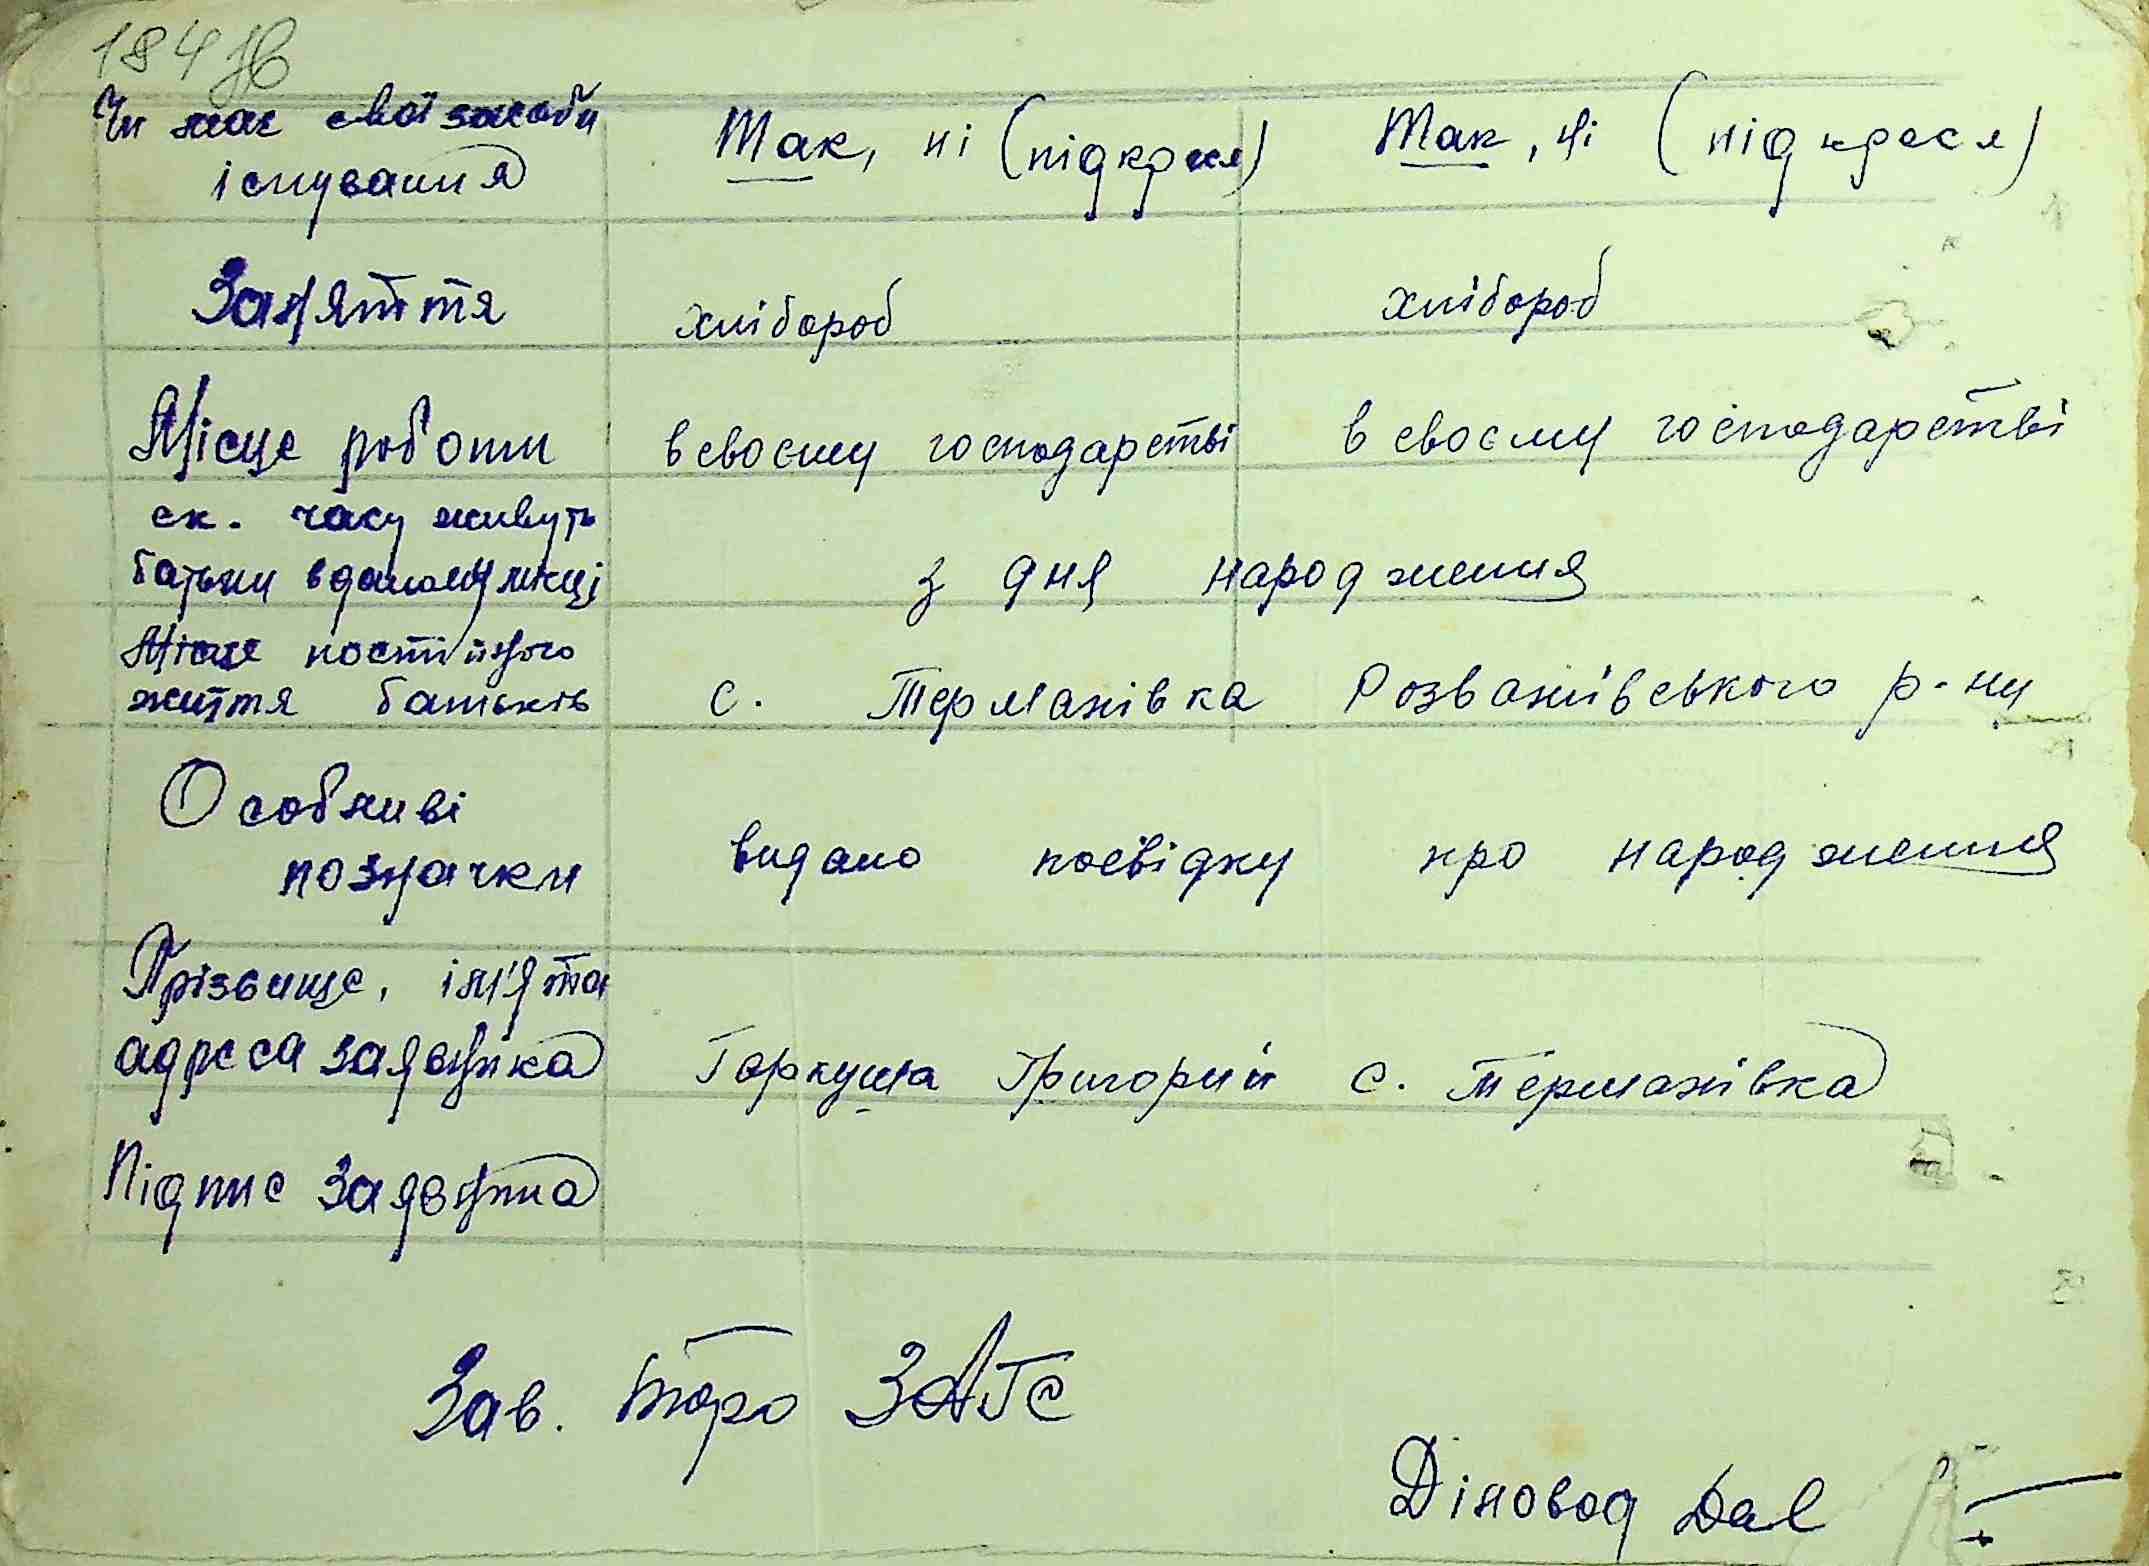 184
Чи має свої засоби
існування
Так, ні (підкресл)
Так, ні (підкресл)
Заняття
хлібороб
хлібороб
Місце роботи
в своєму господарстві
в своєму господарстві
ск. часу живуть
батьки в даному місці
з дня народження
Місце постійного
життя батьків
с. Термахівка Розважівського р-ну
Особливі
позначки
видано посвідку про народження
Прізвище, ім'я та
адреса заявника
Гаркуша Григорий с. Термахівка
Підпис заявника
Зав. бюро ЗАГС
Діловод